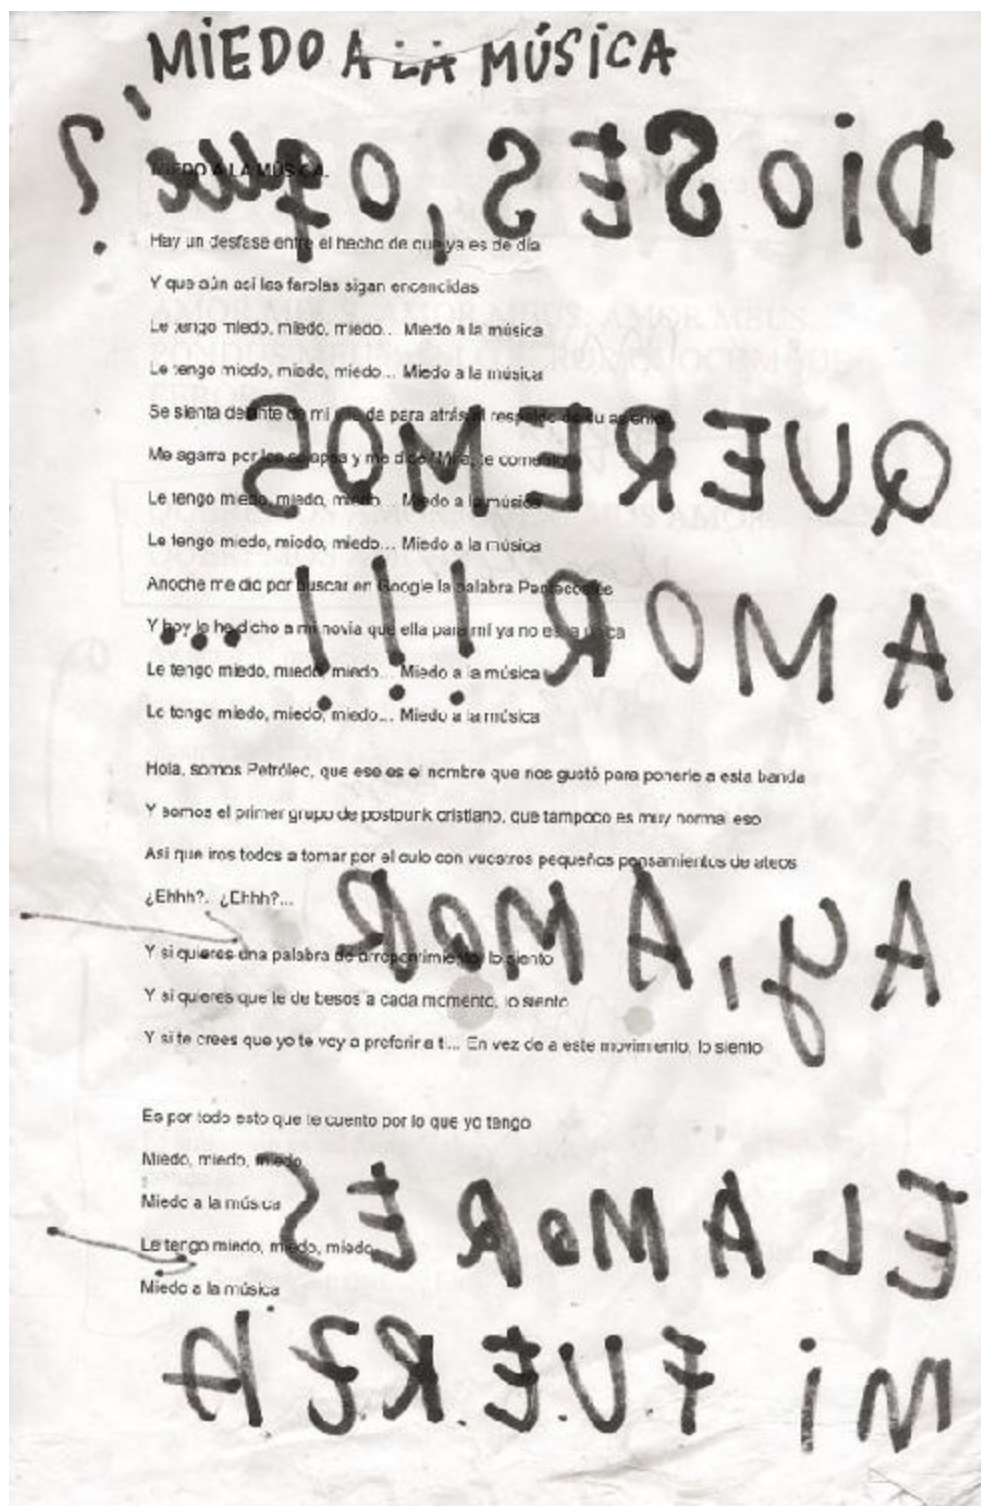 MIEDO A LA MÚSICA
DIOS ES, o que?
MIEDO A LA MÚSICA.
Hay un desfase entre el hecho de que ya es de día
Y que aún así las farolas sigan encencidas
Le tengo miedo, miedo, miedo... Miedo a la música
Le tengo miedo, miedo, miedo... Miedo a la música
Se sienta delante de mí y le da para atrás al respaldo de su asiento
QUEREMOS
Me agarra por las solapas y me dice "Mira, te comento"
Le tengo miedo, miedo, miedo... Miedo a la música
Le tengo miedo, miedo, miedo... Miedo a la música
Anoche me dio por buscar en Google la palabra Pentecostés
AMOR!!!...
Y hoy le he dicho a mi novia que ella para mí ya no es la única
Le tengo miedo, miedo, miedo... Miedo a la música
Le tengo miedo, miedo, miedo... Miedo a la música
Hola, somos Petróleo, que ese es el nombre que nos gustó para ponerle a esta banda
Y somos el primer grupo de postpunk cristiano, que tampoco es muy normal eso
Así que iros todos a tomar por el culo con vuestros pequeños pensamientos de ateos
¿Ehhh?.. ¿Ehhh?...
AY, AMOR
Y si quieres una palabra de arrepentimiento, lo siento
Y si quieres que te de besos a cada momento, lo siento
Y si te crees que yo te voy a preferir a ti... En vez de a este movimiento, lo siento
Es por todo esto que te cuento por lo que yo tengo
Miedo, miedo, miedo
Miedo a la música
EL AMOR ES
Le tengo miedo, miedo, miedo
Miedo a la música
MI F.U.E.R.Z.A